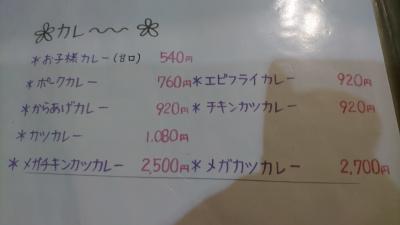 カレ〜〜
*お子様カレー(甘口) 540円
*ポークカレー 760円 *エビフライカレー 920円
*からあげカレー 920円 *チキンカツカレー 920円
*カツカレー 1.080円
*メガチキンカツカレー 2,500円 *メガカツカレー 2,700円